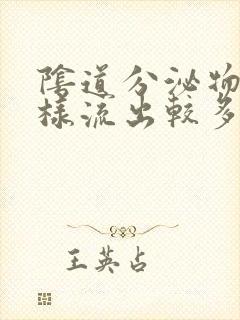 陰道分泌物
樣流出較多
王英占